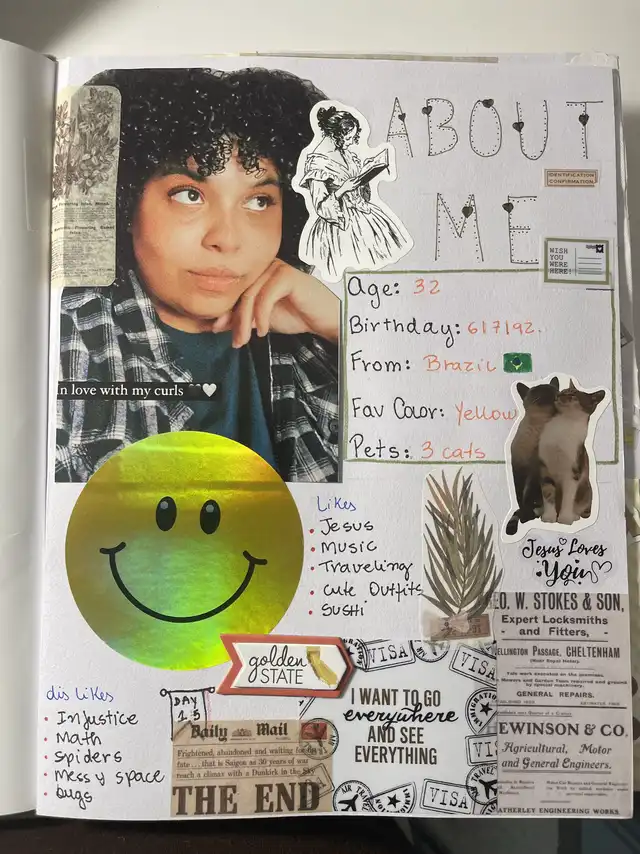 ABOUT
ME
IDENTIFICATION
CONFIRMATION
WISH
YOU
WERE
HERE!
Age: 32
Birthday: 6/7/92.
From: Brazil
Fav Color: Yellow
Pets: 3 cats
in love with my curls
Likes
• Jesus
• Music
• Traveling
• Cute Outfits
• Sushi
Jesus Loves
You
golden
STATE
dislikes
• Injustice
• Math
• spiders
• messy space
• bugs
DAY
15
Daily Mail
Frightened, abandoned and waiting for
fate...that is Saigon as 30 years of war
reach a climax with a Dunkirk in the Sky
THE END
VISA
VISA
I WANT TO GO
everywhere
AND SEE
EVERYTHING
IMMIGRATION
AIR TRAVEL
VISA
AIR TRAVEL
GEO. W. STOKES & SON,
Expert Locksmiths
and Fitters,
WELLINGTON PASSAGE, CHELTENHAM
GENERAL REPAIRS.
EWINSON & CO.
Agricultural, Motor
and General Engineers.
ATHERLEY ENGINEERING WORKS